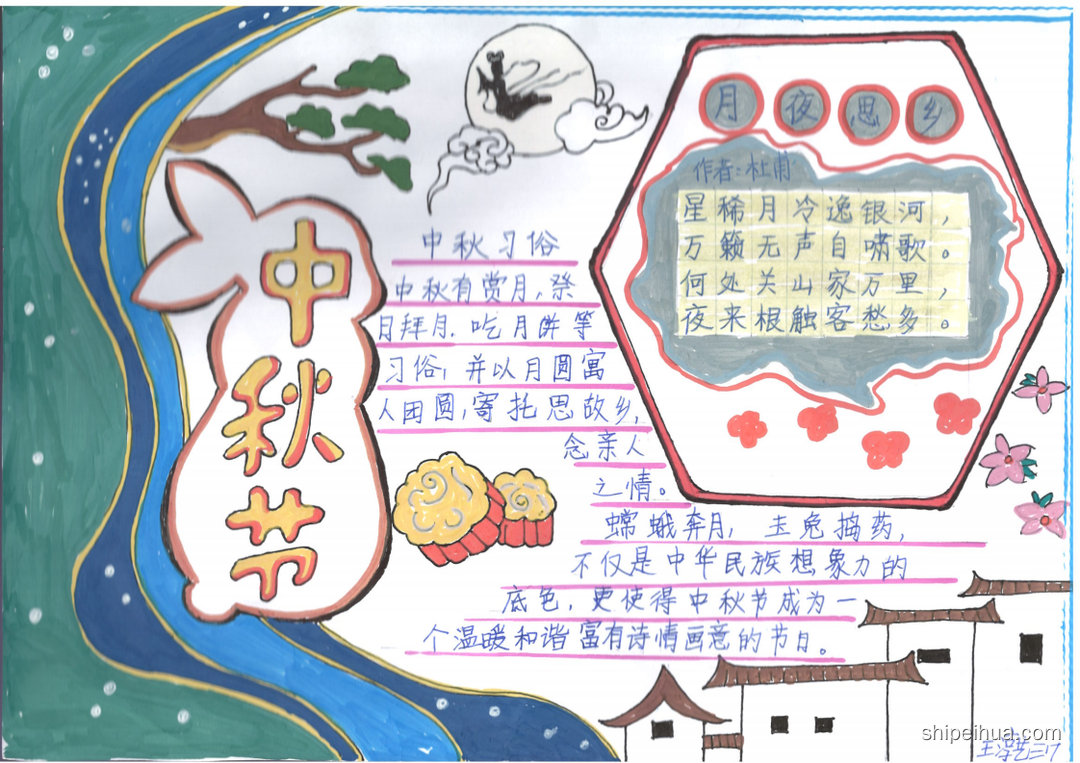 中秋节
中秋习俗
中秋有赏月,祭
月拜月.吃月饼等
习俗,并以月圆寓
人团圆,寄托思故乡,
念亲人
之情。
嫦娥奔月,玉兔捣药,
不仅是中华民族想象力的
底色,更使得中秋节成为一
个温暖和谐富有诗情画意的节日。
月夜思乡
作者:杜甫
星稀月冷逸银河,
万籁无声自啸歌。
何处关山家万里,
夜来枨触客愁多。
shipeihua.com